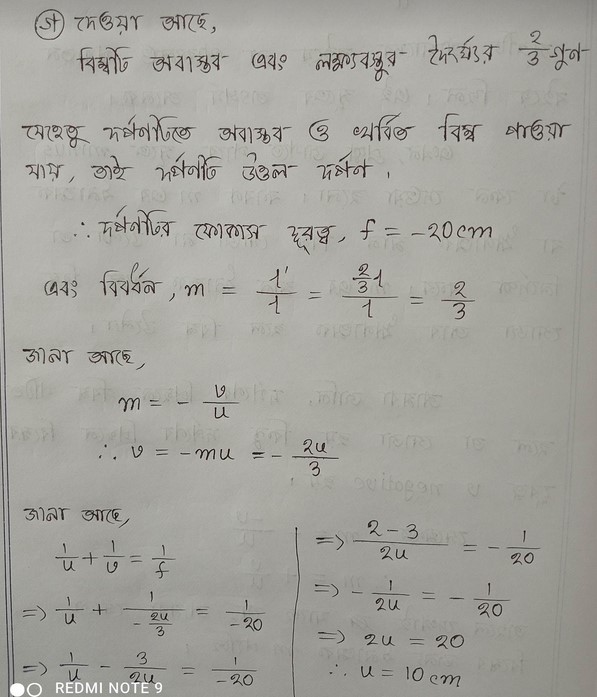 (গ) দেওয়া আছে,
বিম্বটি অবাস্তব এবং লক্ষ্যবস্তুর দৈর্ঘ্যের 2/3 গুন
যেহেতু দর্পণটিতে অবাস্তব ও খর্বিত বিম্ব পাওয়া
যায়, তাই দর্পণটি উত্তল দর্পন।
∴ দর্পণটির ফোকাস দূরত্ব, f = -20cm
এবং বিবর্ধন, m = l'/l = (2/3 l)/l = 2/3
জানা আছে,
m = - v/u
∴ v = -mu = - 2u/3
জানা আছে,
1/u + 1/v = 1/f
=> 1/u + 1/(- 2u/3) = 1/-20
=> 1/u - 3/2u = 1/-20
=> (2-3)/2u = - 1/20
=> - 1/2u = - 1/20
=> 2u = 20
∴ u = 10cm
REDMI NOTE 9